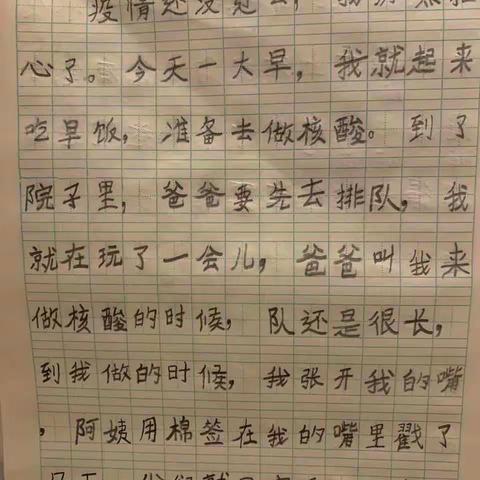 疫情还没过去，我别太担
心了。今天一大早，我就起来
吃早饭，准备去做核酸。到了
院子里，爸爸要先去排队，我
就在玩了一会儿，爸爸叫我来
做核酸的时候，队还是很长，
到我做的时候，我张开我的嘴
，阿姨用棉签在我的嘴里戳了